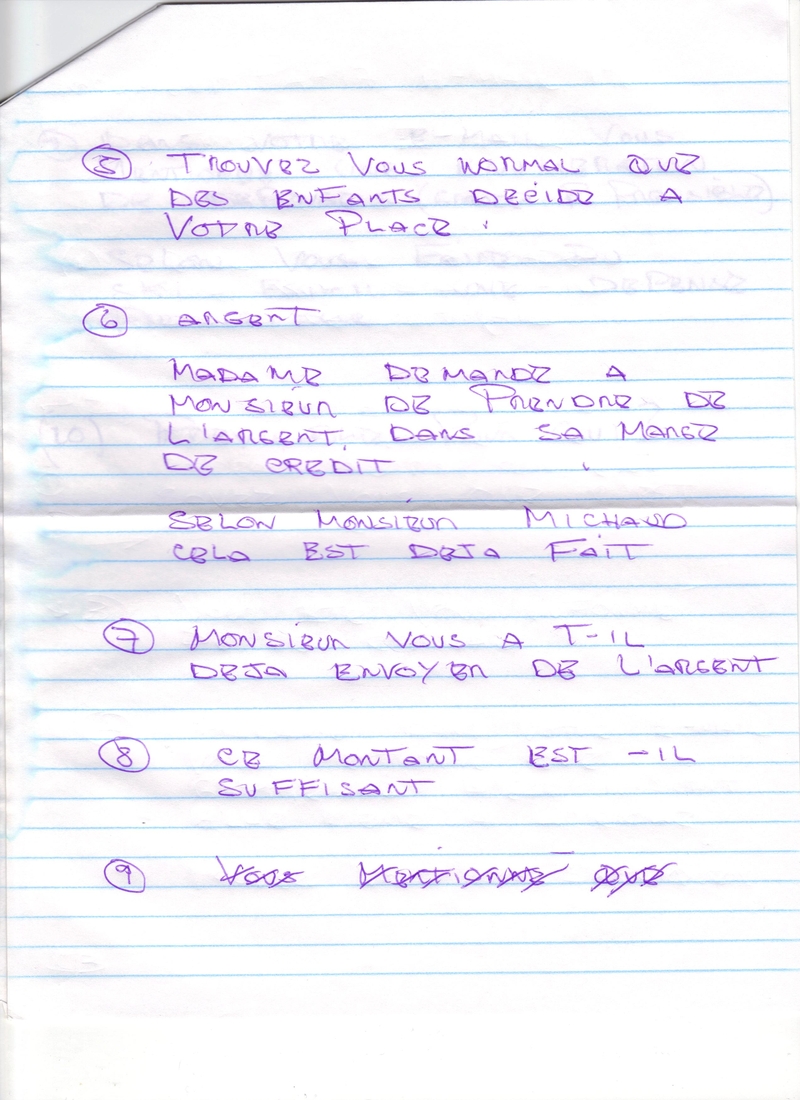 5 TROUVEZ VOUS NORMAL QUE
DES ENFANTS DÉCIDE A
VOTRE PLACE.
6 ARGENT
MADAME DEMANDE A
MONSIEUR DE PRENDRE DE
L'ARGENT DANS SA MARGE
DE CREDIT
SELON MONSIEUR MICHAUD
CELA EST DEJA FAIT
7 MONSIEUR VOUS A T-IL
DEJA ENVOYER DE L'ARGENT
8 CE MONTANT EST-IL
SUFFISANT
9 VOUS MENTIONNE QUE